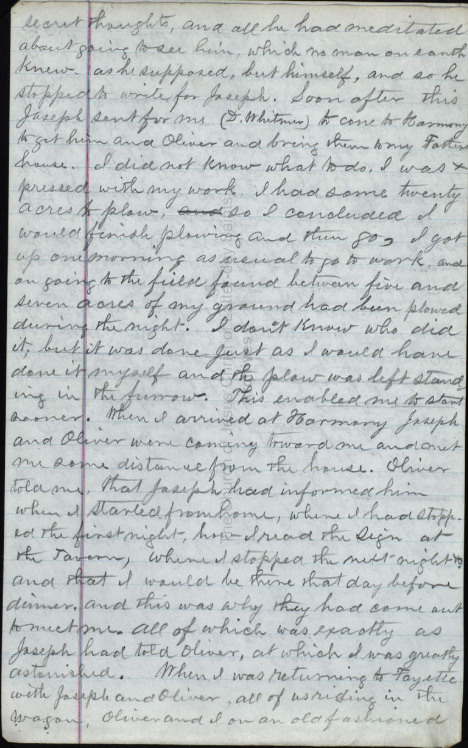 secret thoughts, and all he had meditated
about going to see him, which no man on earth
knew. as he supposed, but himself, and so he
stopped to write for Joseph. Soon after this
Joseph sent for me (D. Whitmer) to come to Harmony
to get him and Oliver and bring them to my Fathers
house. I did not know what to do, I was
pressed with my work. I had some twenty
acres to plow, and so I concluded I
would finish plowing and then go, I got
up one morning as usual to go to work, and
on going to the field found between five and
seven acres of my ground had been plowed
during the night. I don't know who did
it, but it was done just as I would have
done it myself and the plow was left stand
ing in the furrow. This enabled me to start
sooner. When I arrived at Harmony Joseph
and Oliver were coming toward me and met
me some distance from the house. Oliver
told me, that Joseph had informed him
when I started from home, where I had stopp-
ed the first night, how I read the Sign at
the Tavern, where I stopped the next night
and that I would be there that day before
dinner. and this was why they had come out
to meet me. all of which was exactly as
Joseph had told Oliver, at which I was greatly
astonished. When I was returning to Fayette
with Joseph and Oliver, all of us riding in the
wagon, Oliver and I on an old fashioned